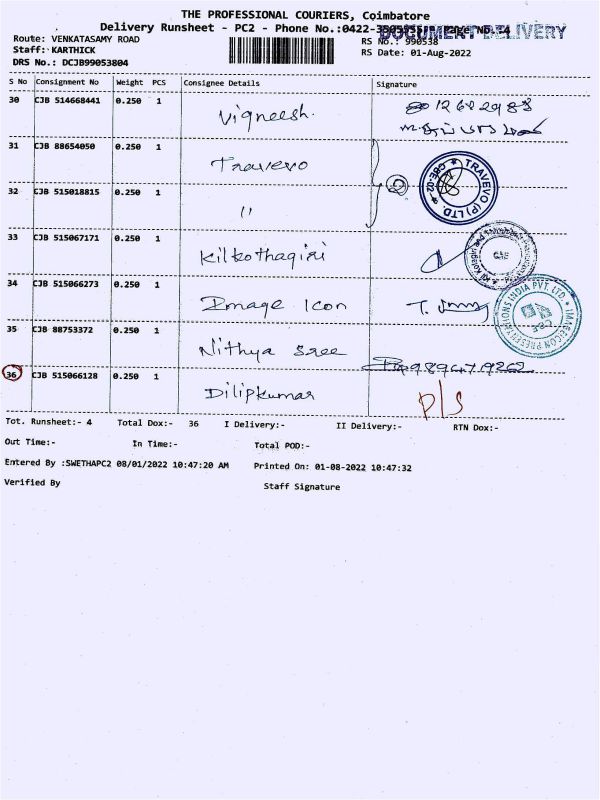 THE PROFESSIONAL COURIERS, Coimbatore
Delivery Runsheet - PC2 - Phone No.:0422- Page No.:4
DOCUMENT DELIVERY
Route: VENKATASAMY ROAD
RS No.: 990538
Staff: KARTHICK
RS Date: 01-Aug-2022
DRS No.: DCJB99053804
S No Consignment No Weight PCS Consignee Details Signature
30 CJB 514668441 0.250 1 Vigneesh.
31 CJB 88654050 0.250 1 Travevo
TRAVEVO (P) LTD ★ CBE-02 ★
32 CJB 515018815 0.250 1 "
33 CJB 515067171 0.250 1 Kilkothagiri
34 CJB 515066273 0.250 1 Image Icon T.
IMAGEICON PRESENTATIONS INDIA PVT. LTD. CBE
35 CJB 88753372 0.250 1 Nithya Sree
36 CJB 515066128 0.250 1 Dilipkumar P/S
Tot. Runsheet:- 4 Total Dox:- 36 I Delivery:- II Delivery:- RTN Dox:-
Out Time:- In Time:- Total POD:-
Entered By :SWETHAPC2 08/01/2022 10:47:20 AM Printed On: 01-08-2022 10:47:32
Verified By Staff Signature